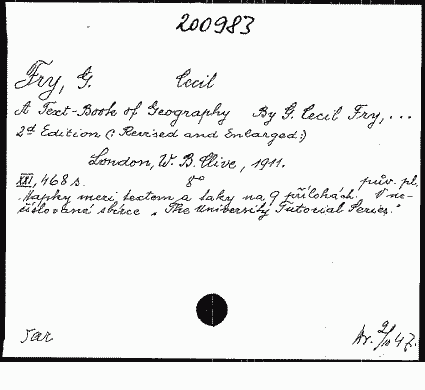 200983
Fry, G. Cecil
A Text-Book of Geography By G. Cecil Fry, ...
2d Edition (: Revised and Enlarged :)
London, W. B. Clive, 1911.
XXI, 468 s. 8o pův. pl.
Mapky mezi textem a taky na 9 přílohách. V ne-
číslované sbírce „The University Tutorial Series."
Tar Ar. 9/10 47.